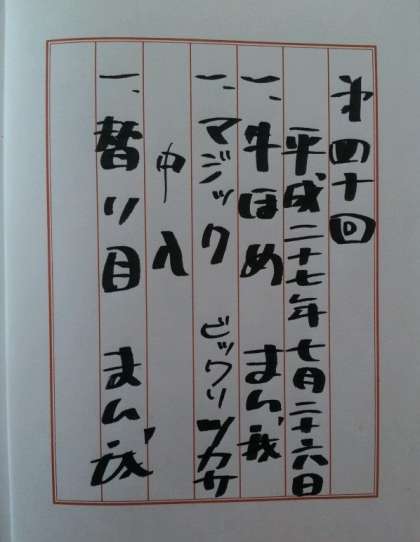 才四十回
平成二十七年七月二十六日
一、牛ほめ まん我
一、マジック ビックリツカサ
中入
一、替り目 まん我